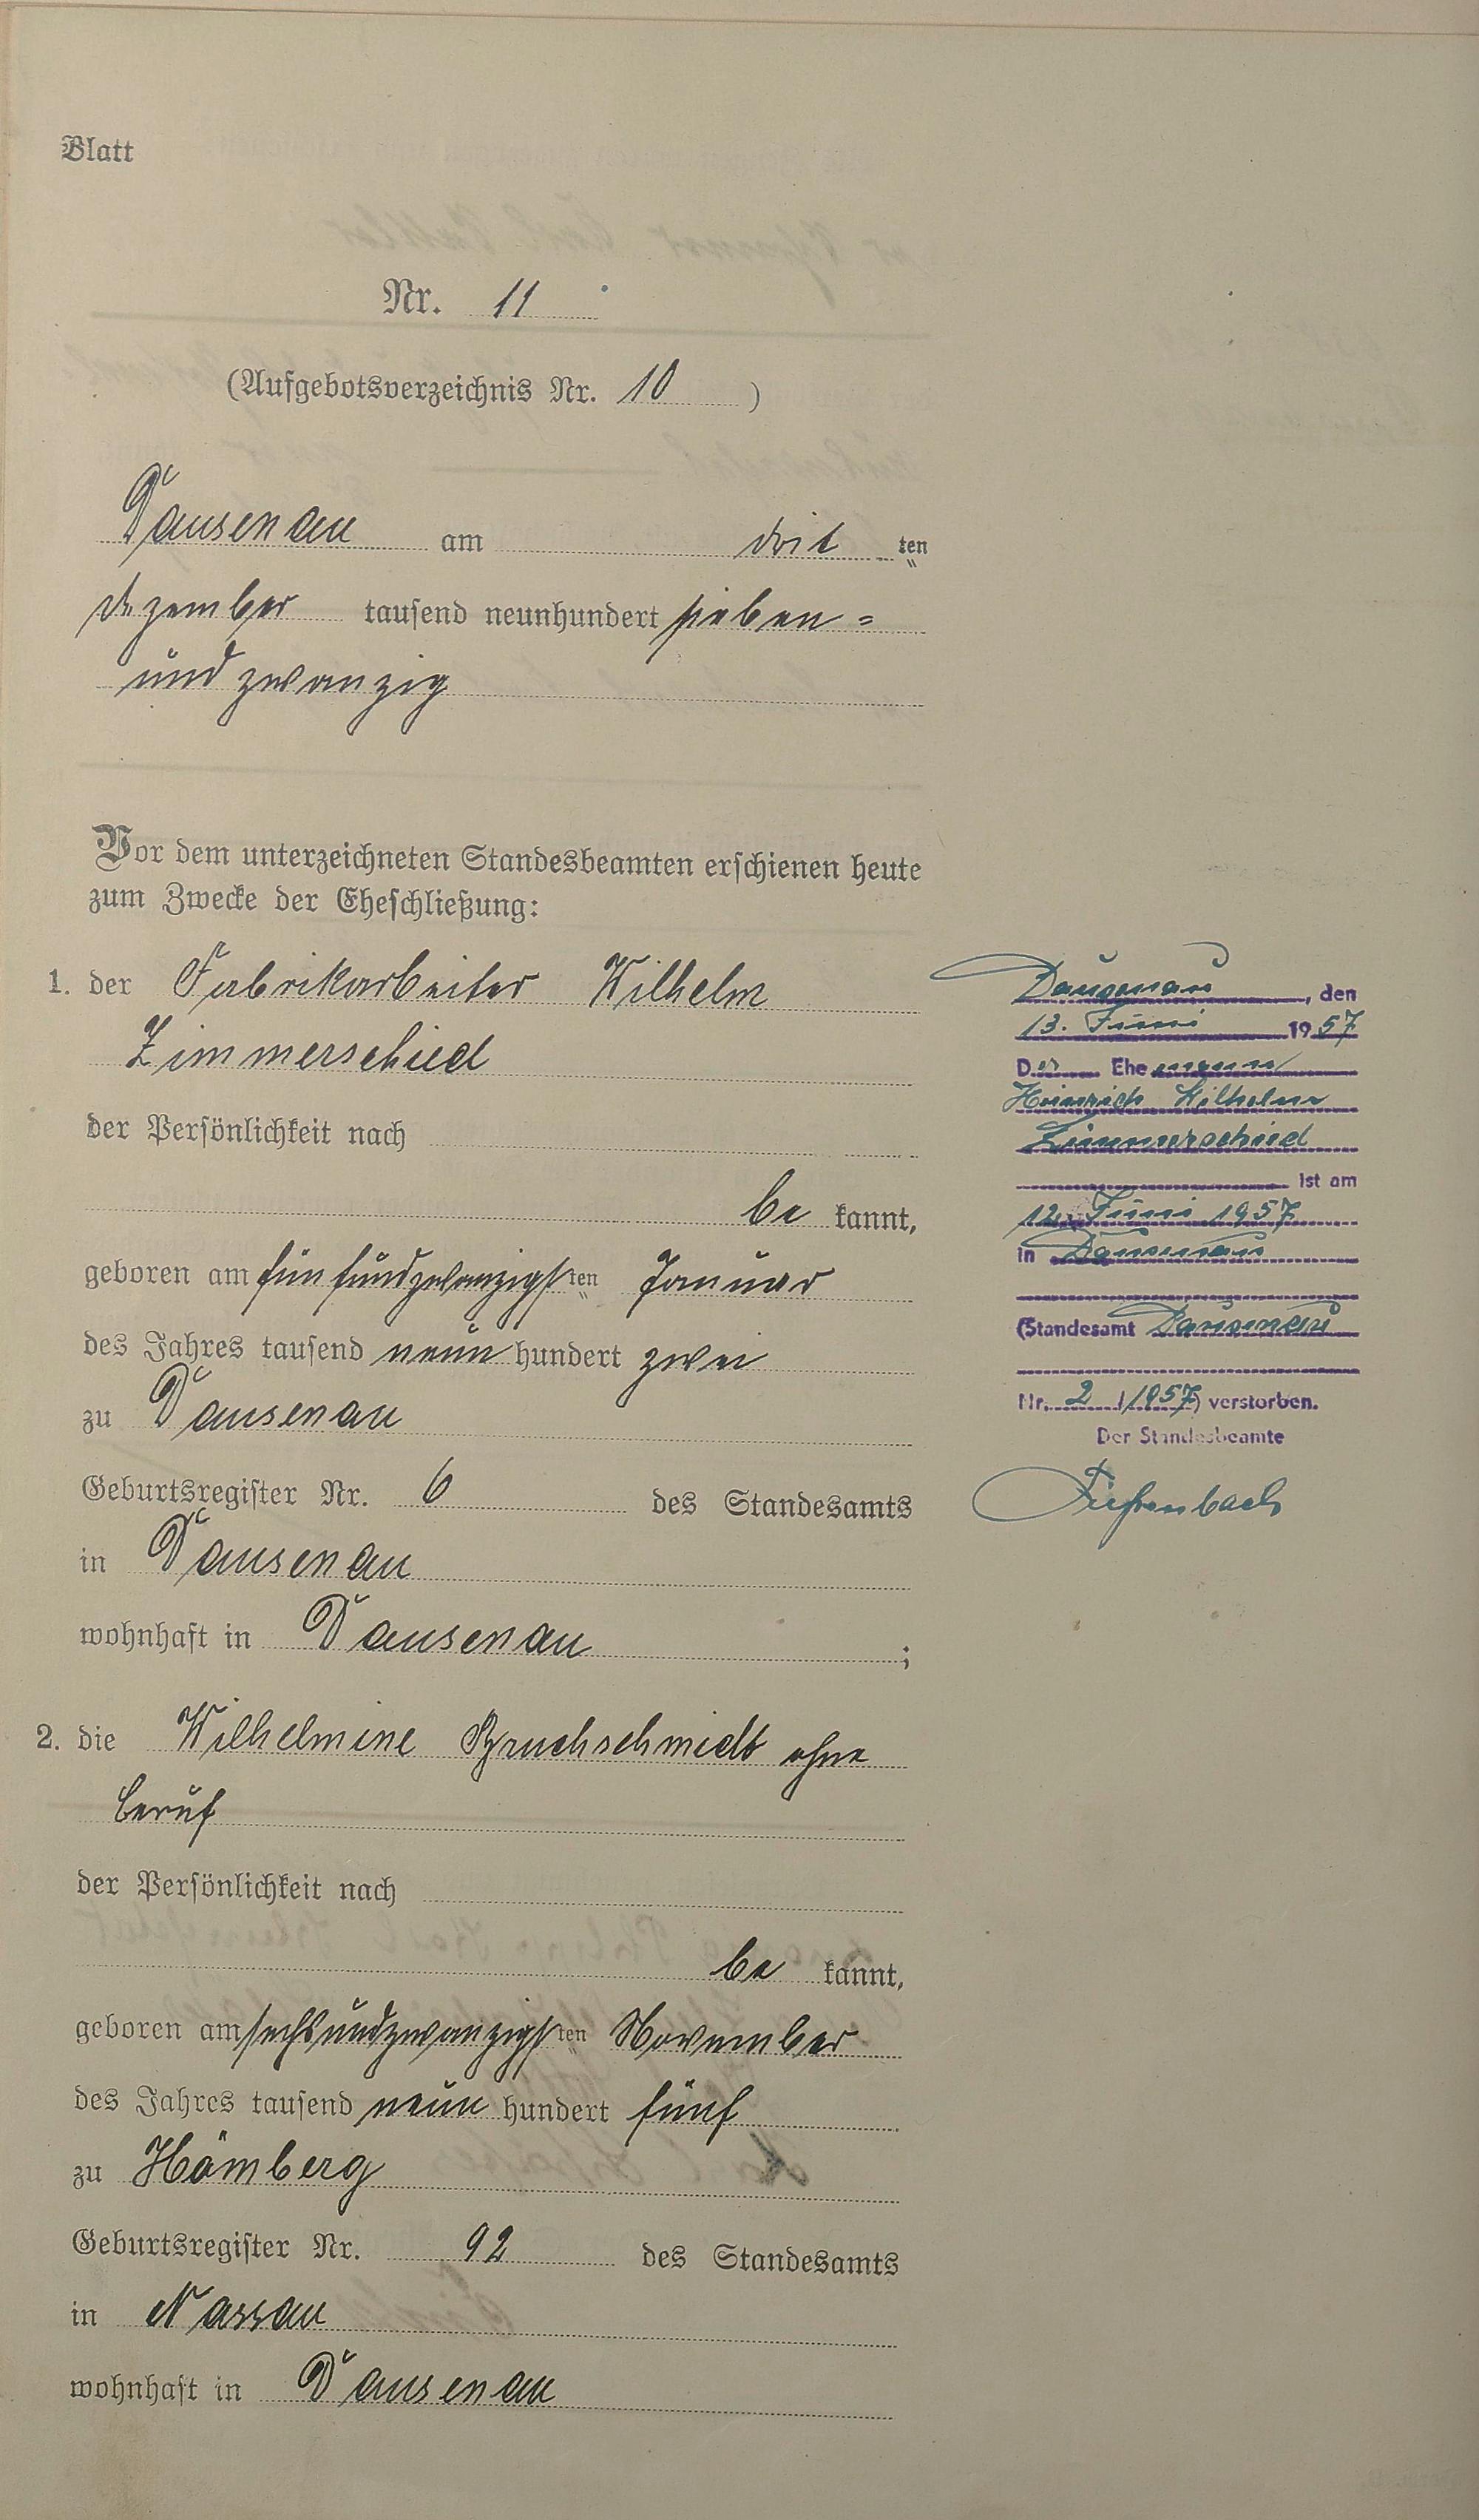 Blatt
Nr. 11
(Aufgebotsverzeichnis Nr. 10 )
Dausenau am drit ten
Dezember tausend neunhundert sieben=
und zwanzig
Vor dem unterzeichneten Standesbeamten erschienen heute
zum Zwecke der Eheschließung:
1. der Fabrikarbeiter Wilhelm
Zimmerschied
der Persönlichkeit nach
be kannt,
geboren am fünfundzwanzigsten Januar
des Jahres tausend neun hundert zwei
zu Dausenau
Geburtsregister Nr. 6 des Standesamts
in Dausenau
wohnhaft in Dausenau ;
2. die Wilhelmine Bruchschmidt ohne
Beruf
der Persönlichkeit nach
be kannt,
geboren am sechsundzwanzigsten November
des Jahres tausend neun hundert fünf
zu Hömberg
Geburtsregister Nr. 92 des Standesamts
in Nassau
wohnhaft in Dausenau
Dausenau, den
13. Juni 1957
Der Ehemann
Heinrich Wilhelm
Zimmerschied
ist am
12. Juni 1957
in Dausenau
(Standesamt Dausenau
Nr. 2 / 1957) verstorben.
Der Standesbeamte